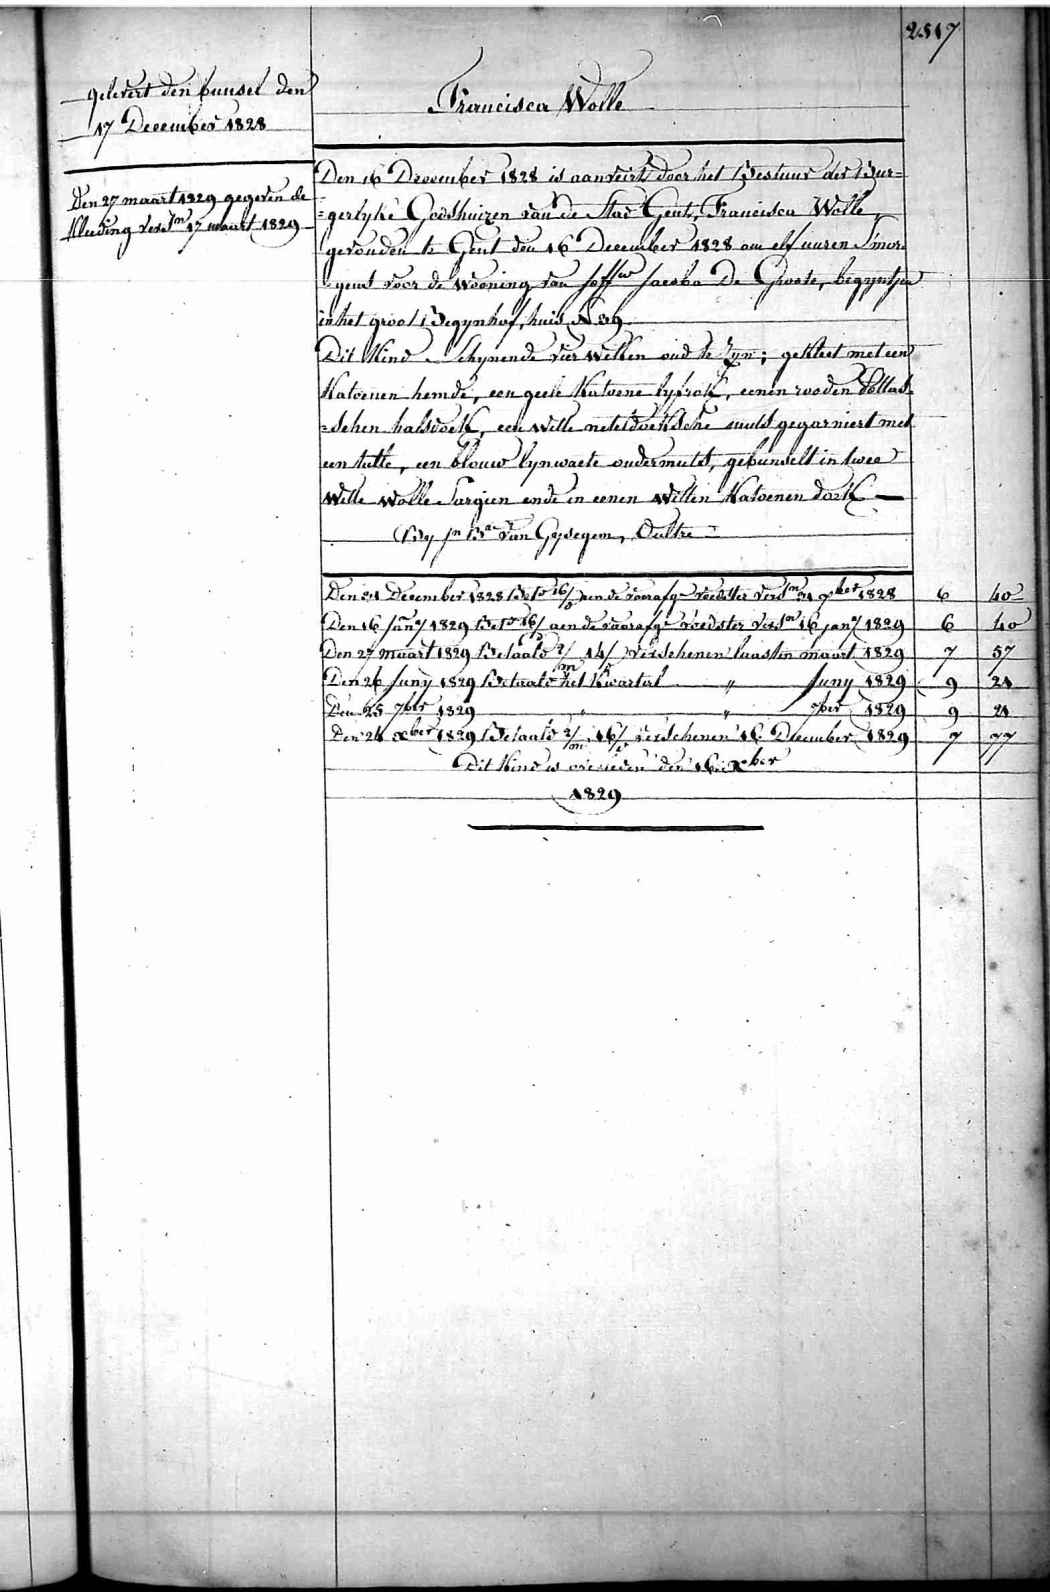 2517
gelevert den bunsel den
17 December 1828
Francisca Wolle
Den 27 maart 1829 gegeven de
Kleeding versn 17 maart 1829
Den 16 December 1828 is aanveirt door het Bestuur der Bur=
=gerlyke Godshuizen van de Stad Gent, Francisca Wolle,
gevonden te Gent den 16 December 1828 om elf uuren S'mor
gens voor de wooning van Joffw Jacoba De Groote, begyntjen
in het groot Begynhof, huis N 39.
Dit Kind Schynende vier weken oud te zyn; gekleet met een
Katoenen hemde, een geele Katoene lyfrok, eenen rooden
=schen halsdoek, een witte neteldoeksche muts gegarniert met
een tulte, een blauw lynwaete ondermuts, gebunselt in twee
witte wolle Sargien ende in eenen witten Katoenen doek
By van Gysegem, Oultre
Den 31 December 1828 Bet 16/ aen de voorafge voedster versn 31 xber 1828 6 40
Den 16 Jany 1829 Bet 16/ aen de voorafge voedster versn 16 jany 1829 6 40
Den 27 maart 1829 Betaald 2/m 14/ verschenen laasten maart 1829 7 57
Den 26 Juny 1829 Betaald het Kwartal " Juny 1829 9 21
Den 25 7ber 1829 " " 7ber 1829 9 21
Den 24 xber 1829 Betaald 2/m 16/ verschenen 16 December 1829 7 77
Dit Kind is overleden den 16 xber
1829